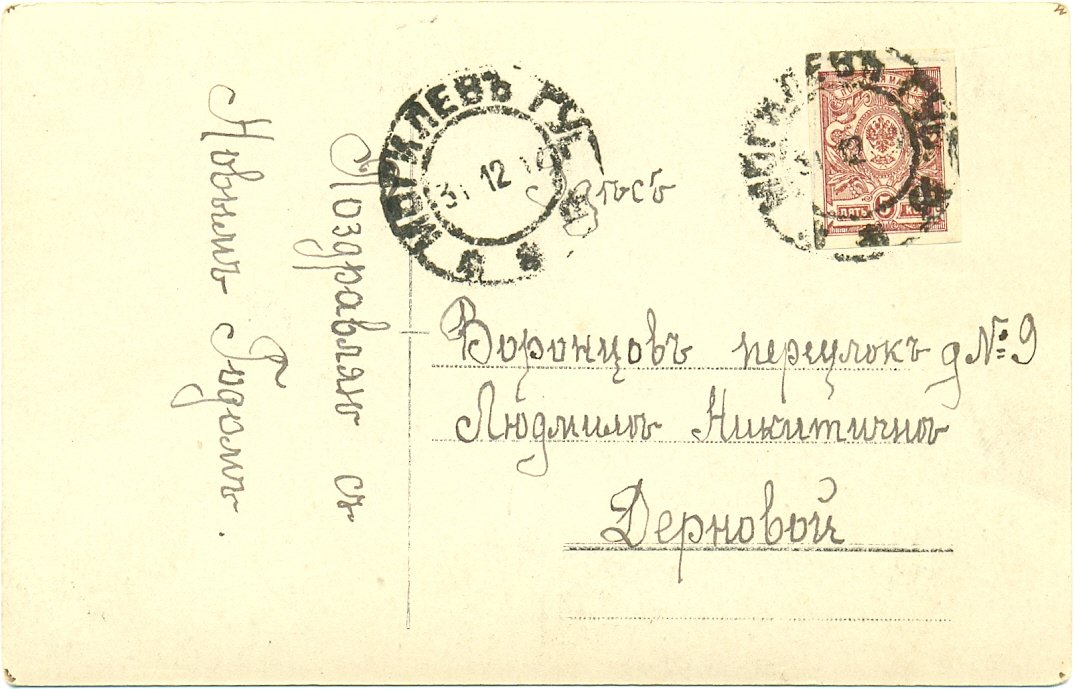 Поздравляю съ
Новымъ Годомъ.
МОГИЛЕВЪ ГУБ
31 12
Здѣсь
МОГИЛЕВЪ ГУБ
31 12
ПЯТЬ 5 КОП
Воронцовъ переулокъ д № 9
Людмилѣ Никитичнѣ
Дерновой